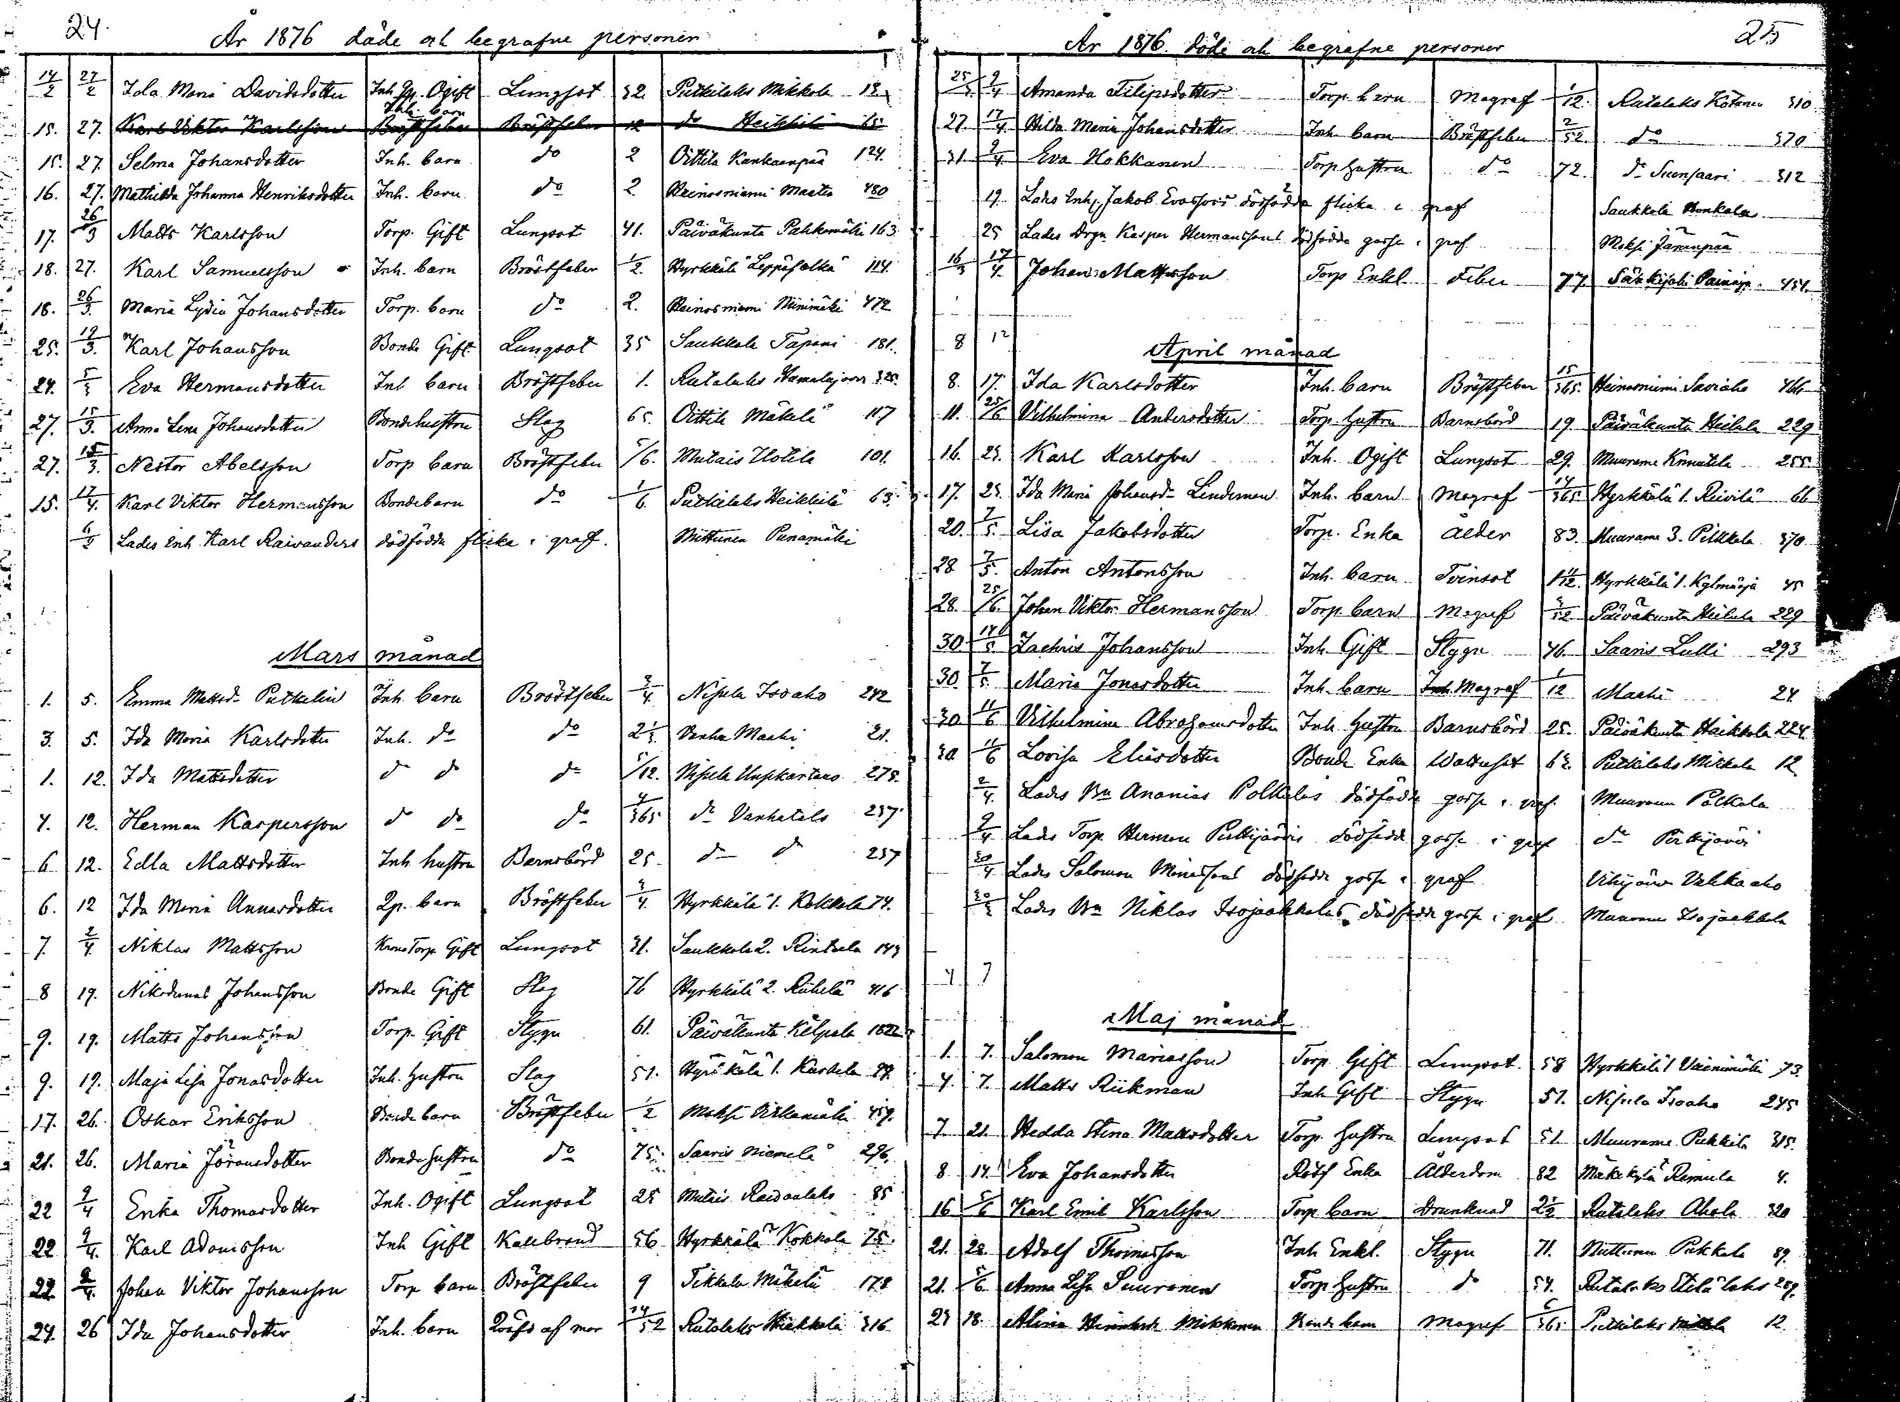 24.
År 1876 döde och begrafne personer
14/2 27/2 Ida Maria Davidsdotter Inh. Ogift Lungsot 32. Putkilaks Mikkola 12
15. 27. Karl Viktor Karlsson Bröstfeber do Heikkilä 65
15. 27. Selma Johansdotter Inh. barn do 2 Oittila Kankaanpää 124.
16. 27. Mathilda Johanna Henriksdotter Inh. barn do 2 Heinosniemi Maatta 480
17. 26/3 Matts Karlsson Torp. Gift Lungsot 41. Päiväkunta Pahkomäki 163
18. 27. Karl Samuelsson Inh. barn Bröstfeber 1/2. Hyrkkälä Leppäpalka 114.
18. 26/3. Maria Lydia Johansdotter Torp. barn do 2. Heinosniemi Niinimäki 472
25. 19/3. Karl Johansson Bonde Gift Lungsot 35 Saukkola Tapani 181.
24. 5/3 Eva Hermansdotter Inh barn Bröstfeber 1. Rutalaks
27. 15/3. Anna Lena Johansdotter Bondehustru Slag 65. Oittila Mäkelä 117
27. 15/3. Nestor Abelsson Torp barn Bröstfeber 5/6. Mutais Uotila 101.
15. 17/4. Karl Viktor Hermansson Bondebarn do 1/6. Putkilaks Heikkilä 65.
6/2 Lades Inh. Karl Raivanders dödfödda flicka i graf. Nittunen Punamäki
Mars månad
1. 5. Emma Mattsd. Putkelin Inh barn Bröstfeber 3/4. Nisula Isoaho 242
3. 5. Ida Maria Karlsdotter Inh. do do 2 1/2 Vanha Maahi 21.
1. 12. Ida Mattsdotter do do do 5/12. Nisula 275.
4. 12. Herman Kaspersson do do do 4/365 do Vanhatalo 237.
6 12. Edla Mattsdotter Inh hustru Barnsbörd 25. do do 237
6. 12 Ida Maria Annasdotter barn Bröstfeber 3/4. Hyrkkälä 1. Kokkola 74.
7. 2/4. Niklas Mattsson Krono Torp Gift Lungsot 31. Saukkola 2. Rintala 149
8 19. Nikodemus Johansson Bonde Gift Slag 76 Hyrkkälä 2. Rühelä 416
9. 19. Matts Johansson Torp. Gift Stygn 61. Päiväkunta Kilpola
9. 19. Maja Lisa Jonasdotter Inh. hustru Slag 51. Hyrkkälä 1. Kastola
17. 26. Oskar Eriksson Bonde barn Bröstfeber 1/2 Moksi Virkamäki 459.
21. 26. Maria Göransdotter Bonde hustru do 75. Saaris Niemelä 296.
22 9/4 Erika Thomasdotter Inh. Ogift Lungsot 25 Mutais Raidanlaks 85
22 9/4. Karl Adamsson Inh Gift Kallbrand 56 Hyrkkälä Kokkola 75.
22 9/4. Johan Viktor Johansson Torp barn Bröstfeber 9 Tikkala Mäkelä 178
24. 26 Ida Johansdotter Inh. barn Qväfd af mor 24/52 Rutalaks Heikkola 316
25
År 1876 döde och begrafne personer
25/3 9/4 Amanda Filipsdotter Torp. barn Magref 1/12. Rutalaks Kötönen 310
27. 17/4. Hilda Maria Johansdotter Inh barn Bröstfeber 2/52. do 370
31. 9/4. Eva Hokkanen Torp hustru do 72. do Suonsaari 312
19. Lades Inh. Jakob Evassons dödfödda flicka i graf Saukkola Honkola
25 Lades Drgn Kasper Hermanssons dödfödda gosse i graf Moksi Jämsenpää
16/3 17/4. Johan Mattsson Torp Enkl. Feber 77. Särkijoki Painaja 454.
8 12
April månad
8. 17. Ida Karlsdotter Inh. barn Bröstfeber 15/365. Heinosniemi Saviaho 466
11. 25/6 Vilhelmina Andersdotter Torp. hustru Barnsbörd 19. Päiväkunta Heikola 229
16. 23. Karl Karlsson Inh. Ogift Lungsot 29. Muurame Knuutila 255
17. 23. Ida Maria Johansd. Lindeman Inh. barn Magref 14/365. Hyrkkälä 1. Reivilä 66
20. 7/5. Lisa Jakobsdotter Torp. Enka Ålder 83. Muurame 3. Pilkkola 370
28 7/5. Anton Antonsson Inh. barn Tvinsot 1 11/12. Hyrkkälä 1. Kylmäoja 45
28. 25/6. Johan Viktor Hermansson Torp barn Magref 3/52 Päiväkunta Heikola 229
30 14/5. Zachris Johansson Inh Gift Stygn 46. Saaris Lulli 293
30. 7/5. Maria Jonasdotter Inh. barn Magref 1/12 Maahi 24
30 11/6 Vilhelmina Abrahamsdotter Inh. hustru Barnsbörd 25. Päiväkunta Heikkola 224
30. 11/6 Lovisa Eliasdotter Bonde Enka Wattusot 62. Putkilaks Mikkola 12
2/4. Lades Bn Ananias Polkelas dödfödde gosse i graf. Muurame Pölkola
9/4 Lades Torp. Herman Pirttijärvis dödfödde gosse i graf do Pirttijärvi
30/4 Lades Salomon Miniassons dödfödde gosse i graf Vihijärvi Valkaaho
30/3 Lades Bn Niklas Isojaakkolas dödfödde gosse i graf Muurame Isojaakkola
4 7
Maj månad
1. 7. Salomon Mariasson Torp. Gift Lungsot. 58 Hyrkkälä 1 Väinimäki 73.
4. 7. Matts Rükman Inh Gift Stygn 57. Nisula Isoaho 245
7. 21. Hedda Stina Mattsdotter Torp. hustru Lungsot 51. Muurame Pukkila 315.
8. 14. Eva Johansdotter Enka Ålderdom 82 Mäkikylä Remula 4.
16 5/6 Karl Emil Karlsson Torp. barn Drunknad 2 1/2 Rutalaks Ahola 320
21. 28. Adolf Thomasson Inh Enkl. Stygn 71. Nittunen Pukkala 89.
21. 5/6. Anna Lisa Suuronen Torp. hustru do 54. Rutalaks Etelälaks 289.
23 18. Alina Mikkonen Magref 6/365. Putkilaks Mikkola 12